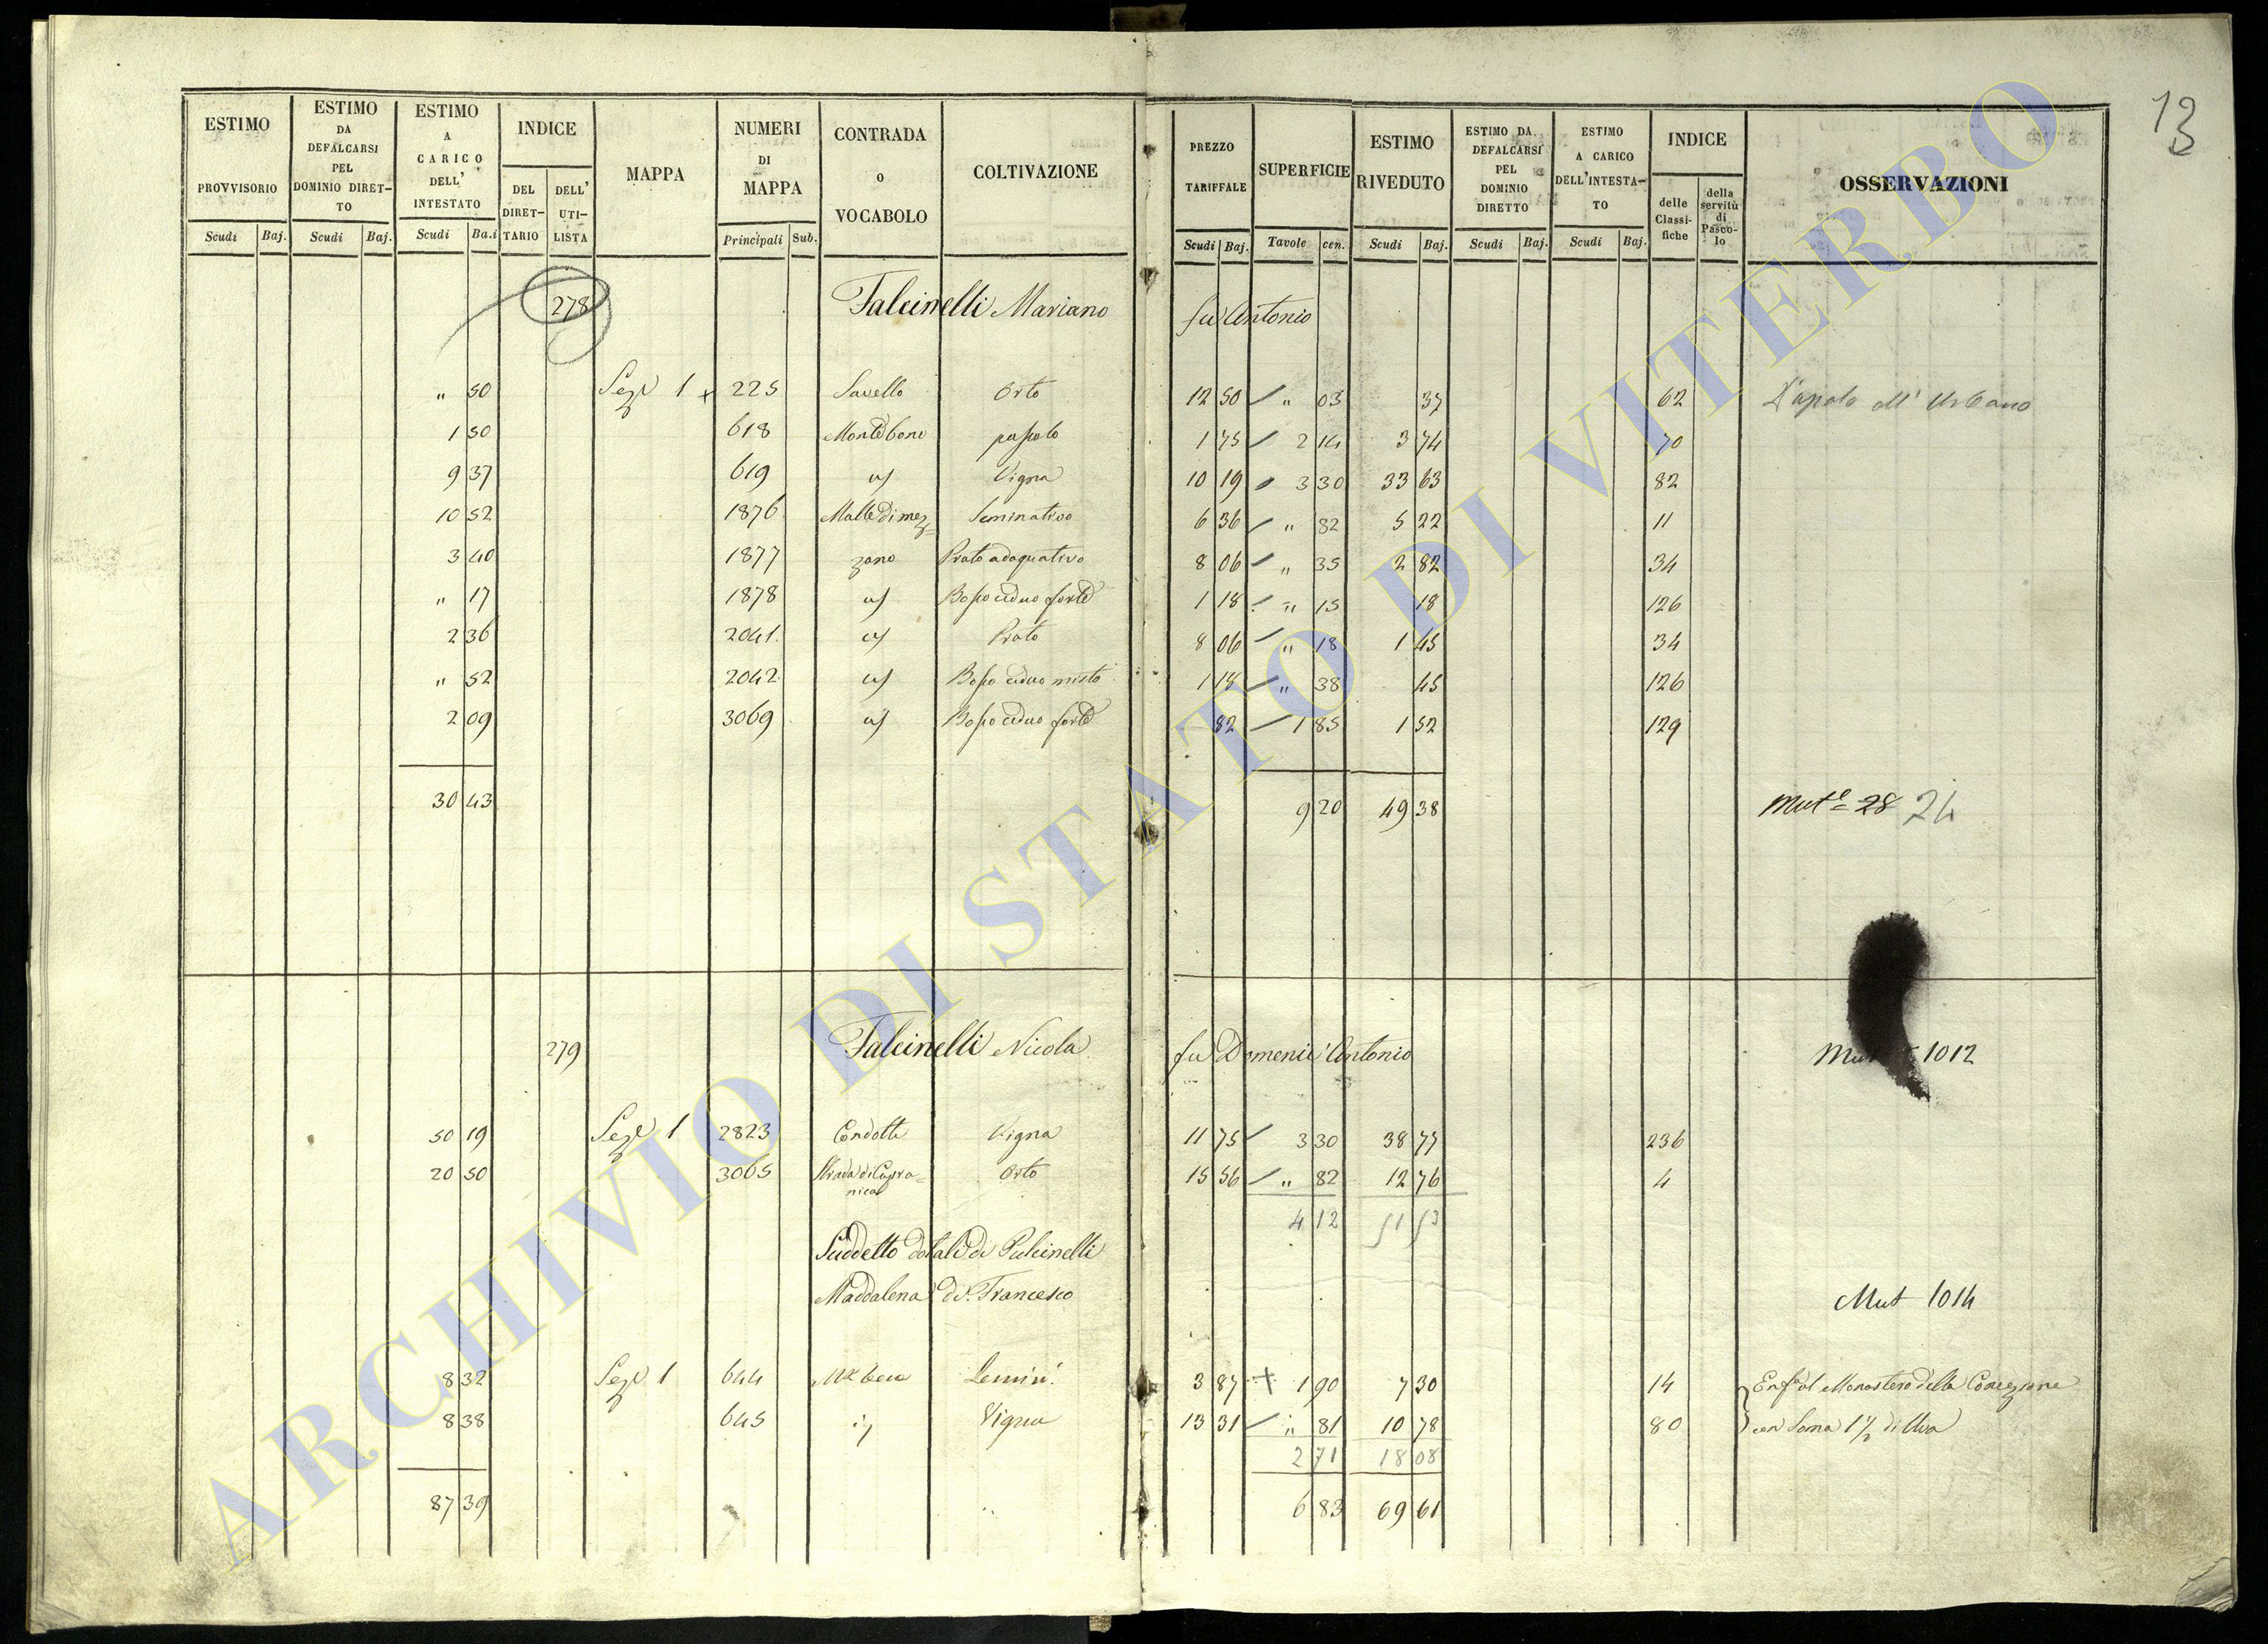 13
ESTIMO PROVVISORIO | ESTIMO DA DEFALCARSI PEL DOMINIO DIRET-TO | ESTIMO A CARICO DELL' INTESTATO | INDICE | MAPPA | NUMERI DI MAPPA | CONTRADA O VOCABOLO | COLTIVAZIONE | PREZZO TARIFFALE | SUPERFICIE | ESTIMO RIVEDUTO | ESTIMO DA DEFALCARSI PEL DOMINIO DIRETTO | ESTIMO A CARICO DELL'INTESTA-TO | INDICE | OSSERVAZIONI
DEL DIRET-TARIO | DELL' UTI-LISTA | delle Classi-fiche | della servitù di Pasco-lo
Scudi | Baj. | Scudi | Baj. | Scudi | Ba.i | Principali | Sub. | Scudi | Baj. | Tavole | cen. | Scudi | Baj. | Scudi | Baj. | Scudi | Baj.
278 Falcinelli Mariano fu Antonio
" 50 Seze 1 x 225 Savello Orto 12 50 " 03 37 62 all' Urbano
1 50 618 Montebono pascolo 1 75 2 14 3 74 70
9 37 619 a/ Vigna 10 19 3 30 33 63 82
10 52 1876 Valle di mez= Seminativo 6 36 " 82 5 22 11
3 40 1877 zano Prato adaquativo 8 06 " 35 2 82 34
" 17 1878 a/ Bosco ceduo forte 1 18 " 15 18 126
2 36 2041 a/ Prato 8 06 " 18 1 45 34
" 52 2042 a/ Bosco ceduo misto 1 18 " 38 45 126
2 09 3069 a/ Bosco ceduo forte 82 1 85 1 52 129
30 43 9 20 49 38 Mut.e = 28 24
279 Falcinelli Nicola fu Domenic' Antonio 1012
50 19 Seze 1 2823 Condotte Vigna 11 75 3 30 38 77 236
20 50 3065 Strada di Capra= Orto 15 56 " 82 12 76 4
nica
4 12 51 53
Suddetto dotale di Pulcinelli
Maddalena di Francesco
Mut 1014
8 32 Seze 1 644 Semin. 3 87 + 1 90 7 30 14 Enf. al Monastero della Concezione
8 38 645 Vigna 13 31 " 81 10 78 80 con Soma 1 1/2 di Uva
2 71 18 08
87 39 6 83 69 61
ARCHIVIO DI STATO DI VITERBO